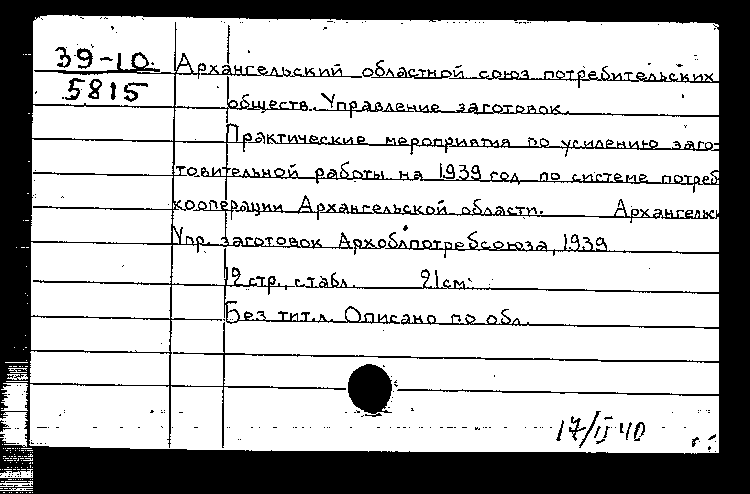 39-10.
5815
Архангельский областной союз потребительских
обществ. Управление заготовок.
Практические мероприятия по усилению заго-
товительной работы на 1939 год по системе потреб
кооперации Архангельской области. Архангельск
Упр. заготовок Архоблпотребсоюза, 1939
12 стр., с табл. 21 см.
Без тит. л. Описано по обл.
17/II 40